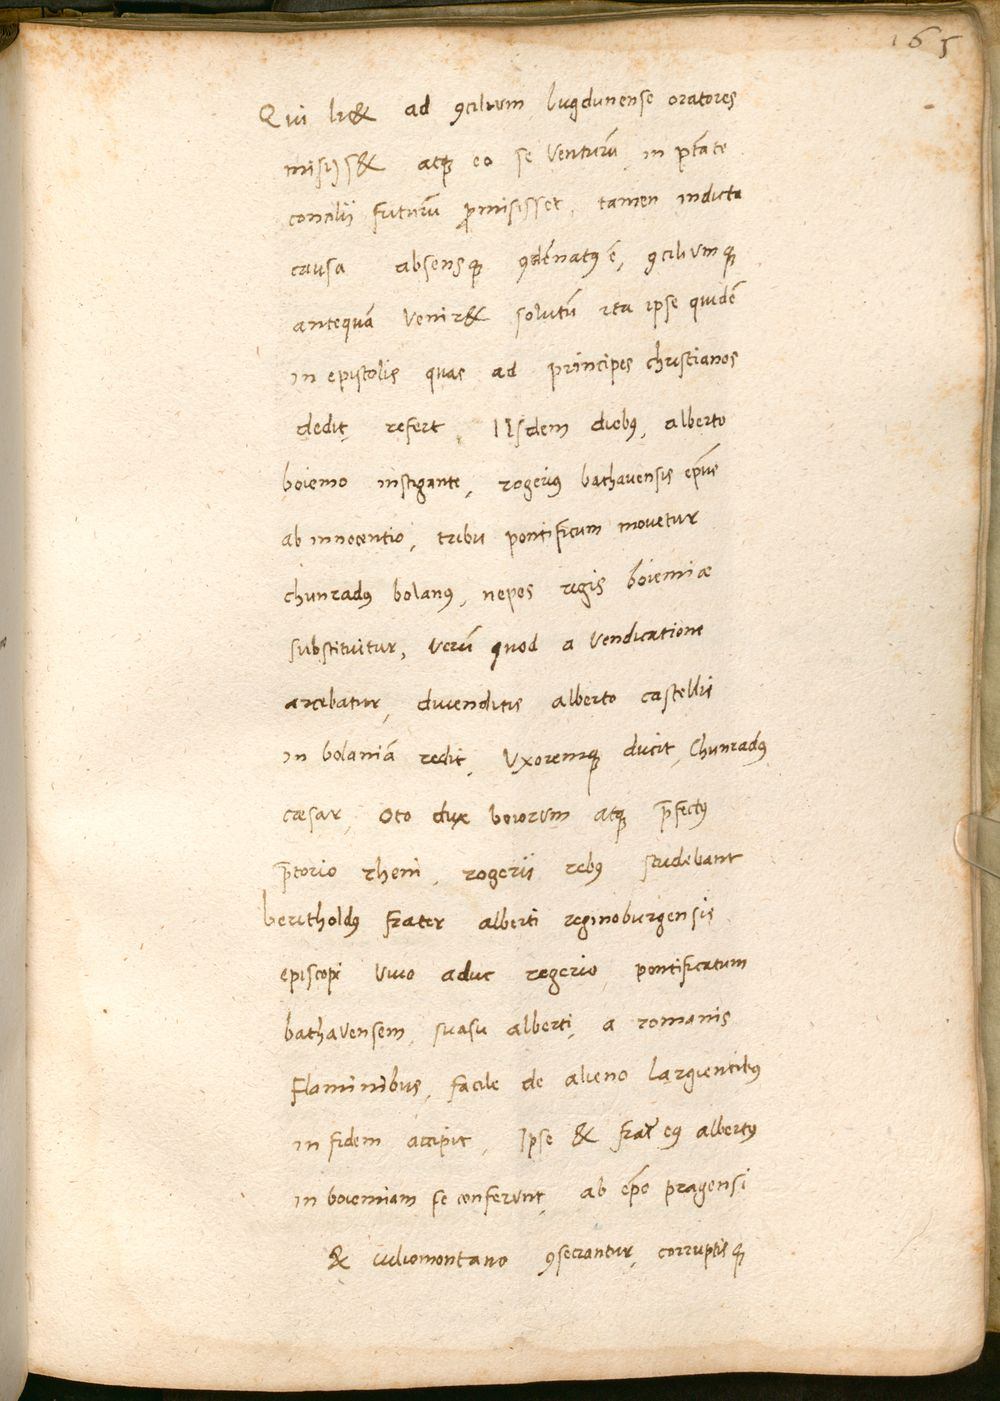 165
Qui li&& ad ꝯcilium lugdunense oratores
misijs& atqꝫ eo se venturū in ptāte
concilij futurū ꝓmisisset, tamen indicta
causa absensqꝫ ꝯdēnatꝰ ē, ꝯciliumqꝫ
antequā venir& solutū ita ipse quidē
in epistolis quas ad principes christianos
dedit, refert. IIsdem diebꝰ, alberto
boiemo instigante, rogeriꝰ bathavensis ep̄us
ab innocentio, tribu pontificum movetur
chunradꝰ bolanꝰ, nepos regis boiemiæ
substituitur, verū quod a vendicatione
arcebatur, divenditis alberto castellis
in bolaniā redit, Vxoremqꝫ ducit, Chunradꝰ
cæsar, Oto dux boiorum atqꝫ p̄fectꝰ
p̄torio rheni, rogerii rebꝰ studebant
beritholdꝰ frater alberti reginoburgensis
episcopi vivo aduc rogerio, pontificatum
bathavensem, suasu alberti, a romanis
Flaminibus, facile de alieno largientibꝰ
in fidem accipit, Ipse & frat̄ eꝰ albertꝰ
in boiemiam se conferunt, ab ep̄o pragensi
& iuliomontano ꝯsecrantur, corruptisqꝫ